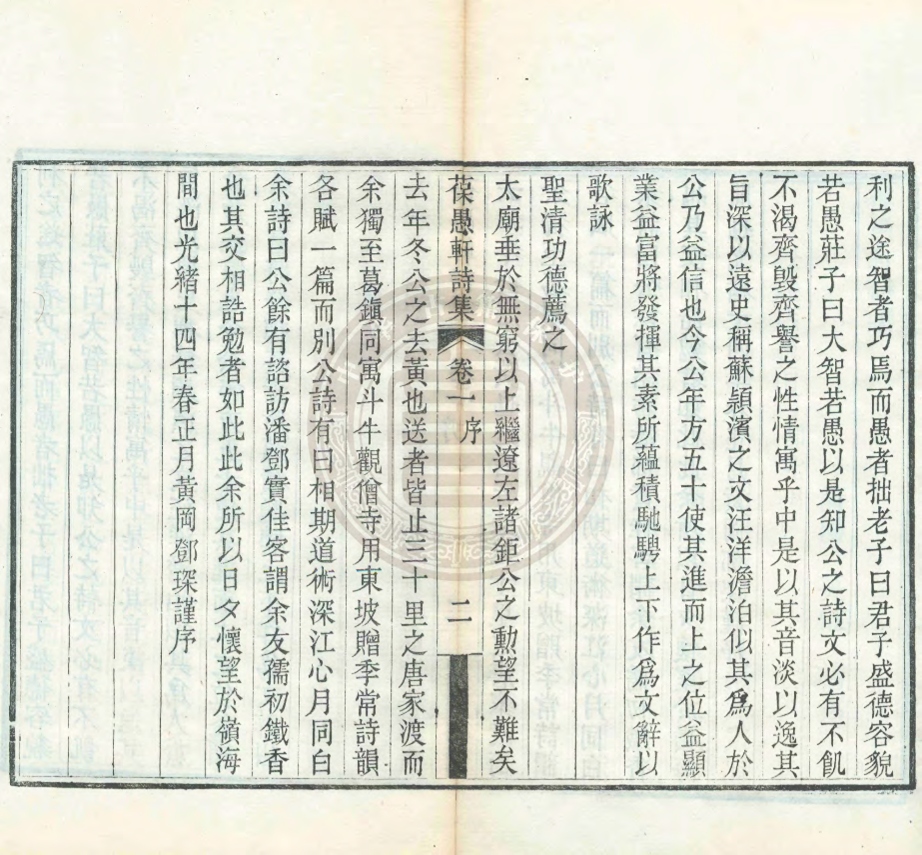 利之途智者巧焉而愚者拙老子曰君子盛德容貌
若愚莊子曰大智若愚以是知公之詩文必有不飢
不渴齊毀齊譽之性情寓乎中是以其音淡以逸其
旨深以遠史稱蘇潁濱之文汪洋澹泊似其爲人於
公乃益信也今公年方五十使其進而上之位益顯
業益富將發揮其素所蘊積馳騁上下作爲文辭以
歌詠
聖清功德薦之
太廟垂於無窮以上繼遼左諸鉅公之勳望不難矣
葆愚軒詩集 卷一 序 二
去年冬公之去黃也送者皆止三十里之唐家渡而
余獨至葛鎮同寓斗牛觀僧寺用東坡贈季常詩韻
各賦一篇而別公詩有曰相期道術深江心月同白
余詩曰公餘有諮訪潘鄧實佳客謂余友孺初鐵香
也其交相誥勉者如此此余所以日夕懷望於嶺海
間也光緒十四年春正月黃岡鄧琛謹序